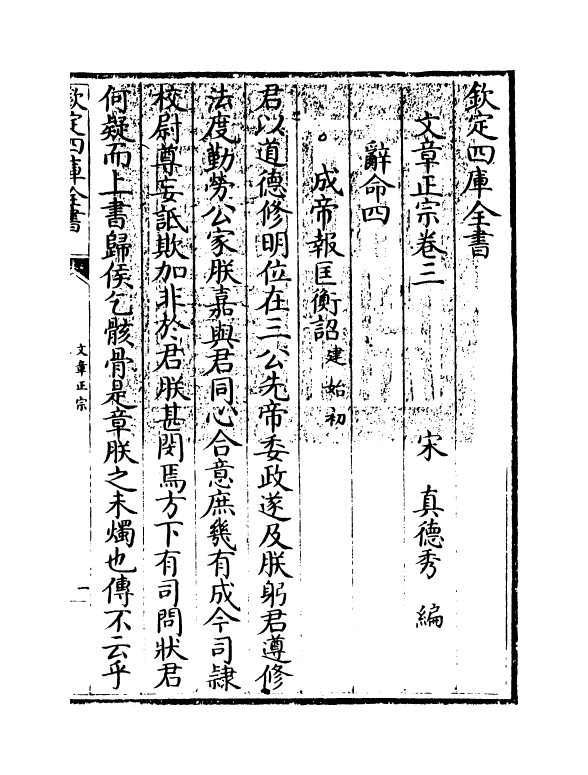 欽定四庫全書
文章正宗卷三
宋 真德秀 編
辭命四
成帝報匡衡詔建始初
君以道德修明位在三公先帝委政遂及朕躬君遵修
法度勤勞公家朕嘉與君同心合意庶幾有成今司隸
校尉尊妄詆欺加非於君朕甚閔焉方下有司問狀君
何疑而上書歸侯乞骸骨是章朕之未燭也傳不云乎
欽定四庫全書
文章正宗
一